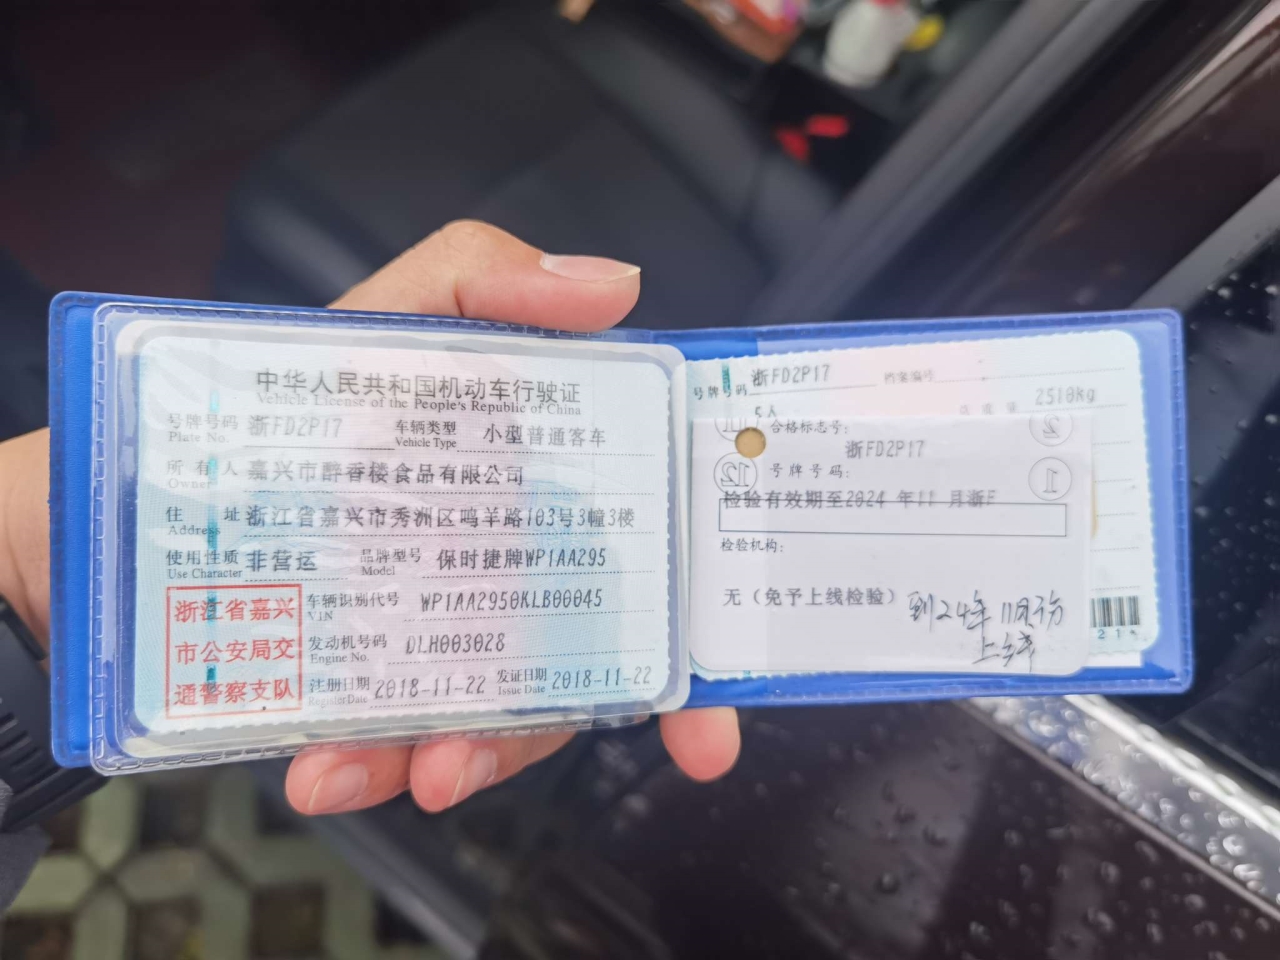 中华人民共和国机动车行驶证
Vehicle License of the People's Republic of China
号牌号码 浙FD2P17 车辆类型 小型普通客车
Plate No. Vehicle Type
所有人 嘉兴市醉香楼食品有限公司
Owner
住址 浙江省嘉兴市秀洲区鸣羊路103号3幢3楼
Address
使用性质 非营运 品牌型号 保时捷牌WP1AA295
Use Character Model
浙江省嘉兴
市公安局交
通警察支队
车辆识别代号 WP1AA2950KLB00045
VIN
发动机号码 DLH003028
Engine No.
注册日期 2018-11-22 发证日期 2018-11-22
Register Date Issue Date
号牌号码 浙FD2P17 档案编号
5人 总质量 2510kg
合格标志号:
浙FD2P17
号牌号码:
12 1 2
检验有效期至2024 年11 月浙F
检验机构:
无（免予上线检验）
到24年11月份
上线